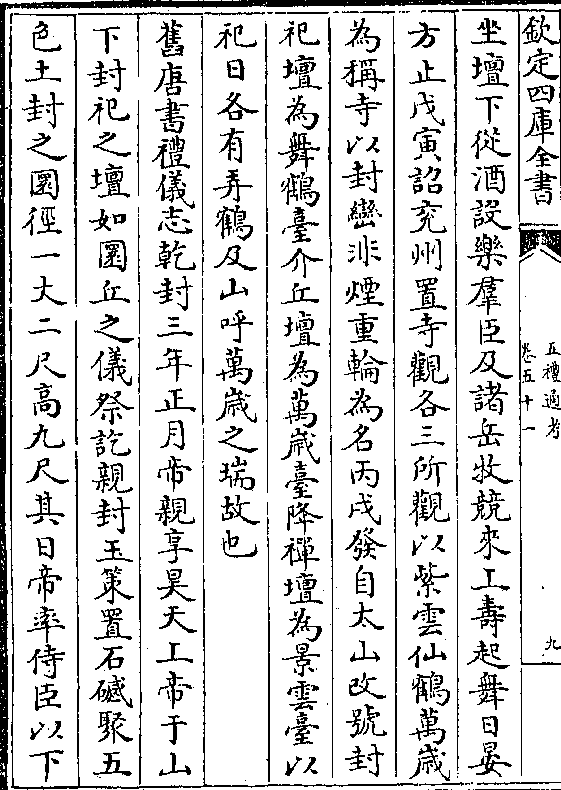 欽定四庫全書
五禮通考
卷五十一
九
坐壇下從酒設樂羣臣及諸岳牧競來上壽起舞日晏
方止戊寅詔兖州置寺觀各三所觀以紫雲仙鶴萬歲
為稱寺以封巒非煙重輪為名丙戌發自太山改號封
祀壇為舞鶴臺介丘壇為萬歲臺降禪壇為景雲臺以
祀日各有弄鶴及山呼萬歲之瑞故也
舊唐書禮儀志乾封三年正月帝親享昊天上帝于山
下封祀之壇如圜丘之儀祭訖親封玉策置石䃭聚五
色土封之圜徑一丈二尺高九尺其日帝率侍臣以下